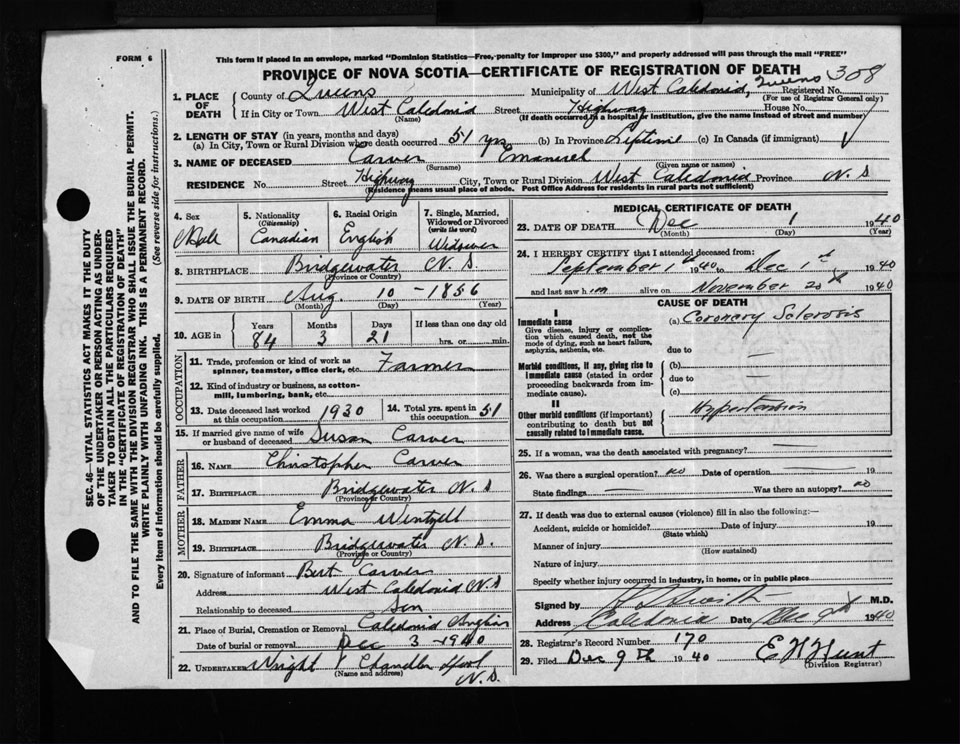 FORM 6
This form if placed in an envelope, marked "Dominion Statistics—Free, penalty for improper use $300," and properly addressed will pass through the mail "FREE"
PROVINCE OF NOVA SCOTIA—CERTIFICATE OF REGISTRATION OF DEATH
308
1. PLACE OF DEATH
County of Queens Municipality of West Caledonia, Queens Registered No.
(For use of Registrar General only)
If in City or Town West Caledonia Street Highway House No.
(Name) (If death occurred in a hospital or institution, give the name instead of street and number)
2. LENGTH OF STAY (in years, months and days)
(a) In City, Town or Rural Division where death occurred 51 yrs (b) In Province Lifetime (c) In Canada (if immigrant)
3. NAME OF DECEASED Carver Emanuel
(Surname) (Given name or names)
RESIDENCE No. Street Highway City, Town or Rural Division West Caledonia Province N.S
(Residence means usual place of abode. Post Office Address for residents in rural parts not sufficient)
4. Sex
Male
5. Nationality
(Citizenship)
Canadian
6. Racial Origin
English
7. Single, Married, Widowed or Divorced
(write the word)
Widower
8. BIRTHPLACE Bridgewater N.S.
(Province or Country)
9. DATE OF BIRTH Aug. 10 - 1856
(Month) (Day) (Year)
10. AGE in
Years Months Days If less than one day old
84 3 21 hrs. or min.
OCCUPATION
11. Trade, profession or kind of work as spinner, teamster, office clerk, etc. Farmer
12. Kind of industry or business, as cotton-mill, lumbering, bank, etc.
13. Date deceased last worked at this occupation 1930
14. Total yrs. spent in this occupation 51
15. If married give name of wife or husband of deceased Susan Carver
FATHER
16. NAME Christopher Carver
17. BIRTHPLACE Bridgewater N.S
(Province or Country)
MOTHER
18. MAIDEN NAME Emma Wentzell
19. BIRTHPLACE Bridgewater N.S.
(Province or Country)
20. Signature of informant Bert Carver
Address West Caledonia N.S
Relationship to deceased Son
21. Place of Burial, Cremation or Removal Caledonia
Date of burial or removal Dec 3 - 1940
22. UNDERTAKER Wright Chandler
(Name and address)
N.S.
MEDICAL CERTIFICATE OF DEATH
23. DATE OF DEATH Dec 1 1940
(Month) (Day) (Year)
24. I HEREBY CERTIFY that I attended deceased from:
September 1st 1940 to Dec 1st 1940
and last saw him alive on November 20 1940
CAUSE OF DEATH
I
Immediate cause
Give disease, injury or complication which caused death, not the mode of dying, such as heart failure, asphyxia, asthenia, etc.
(a) Coronary Sclerosis
due to
Morbid conditions, if any, giving rise to immediate cause (stated in order proceeding backwards from immediate cause).
(b)
due to
(c)
II
Other morbid conditions (if important) contributing to death but not causally related to immediate cause.
Hypertension
25. If a woman, was the death associated with pregnancy?
26. Was there a surgical operation? no Date of operation 19
State findings Was there an autopsy? no
27. If death was due to external causes (violence) fill in also the following:—
Accident, suicide or homicide? Date of injury 19
(State which)
Manner of injury
(How sustained)
Nature of injury
Specify whether injury occurred in industry, in home, or in public place
Signed by M.D.
Address Caledonia Date Dec 9 1940
28. Registrar's Record Number 170
29. Filed Dec 9th 1940 E H Hunt
(Division Registrar)
SEC. 46—VITAL STATISTICS ACT MAKES IT THE DUTY
OF THE UNDERTAKER OR PERSON ACTING AS UNDER-
TAKER TO OBTAIN ALL THE PARTICULARS REQUIRED
IN THE "CERTIFICATE OF REGISTRATION OF DEATH"
AND TO FILE THE SAME WITH THE DIVISION REGISTRAR WHO SHALL ISSUE THE BURIAL PERMIT.
WRITE PLAINLY WITH UNFADING INK. THIS IS A PERMANENT RECORD.
Every item of information should be carefully supplied. (See reverse side for instructions.)